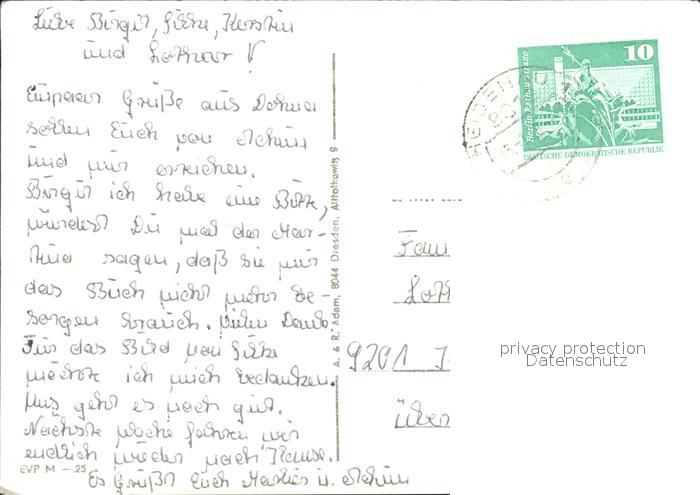 Liebe Birgit, Silke, Kerstin
und Lothar!
Einpaar Grüße aus Dohna
sollen Euch von Achim
und mir erreichen.
Birgit ich habe eine Bitte,
würdest Du mal der Mar-
tina sagen, daß sie mir
das Buch nicht mehr be-
sorgen brauch. Vielen Dank
Für das Bild von Silke
möchte ich mich bedanken.
Uns geht es noch gut.
Nächste Woche fahren wir
endlich wieder nach Hause.
Es Grüßt Euch u. Achim
EVP M –.25
A. & R. Adam, 8044 Dresden, Altlolkewitz 9
10
Berlin, Rathausstraße
DEUTSCHE DEMOKRATISCHE REPUBLIK
HEIDENAU
Fam
Loth
9201
über
privacy protection
Datenschutz